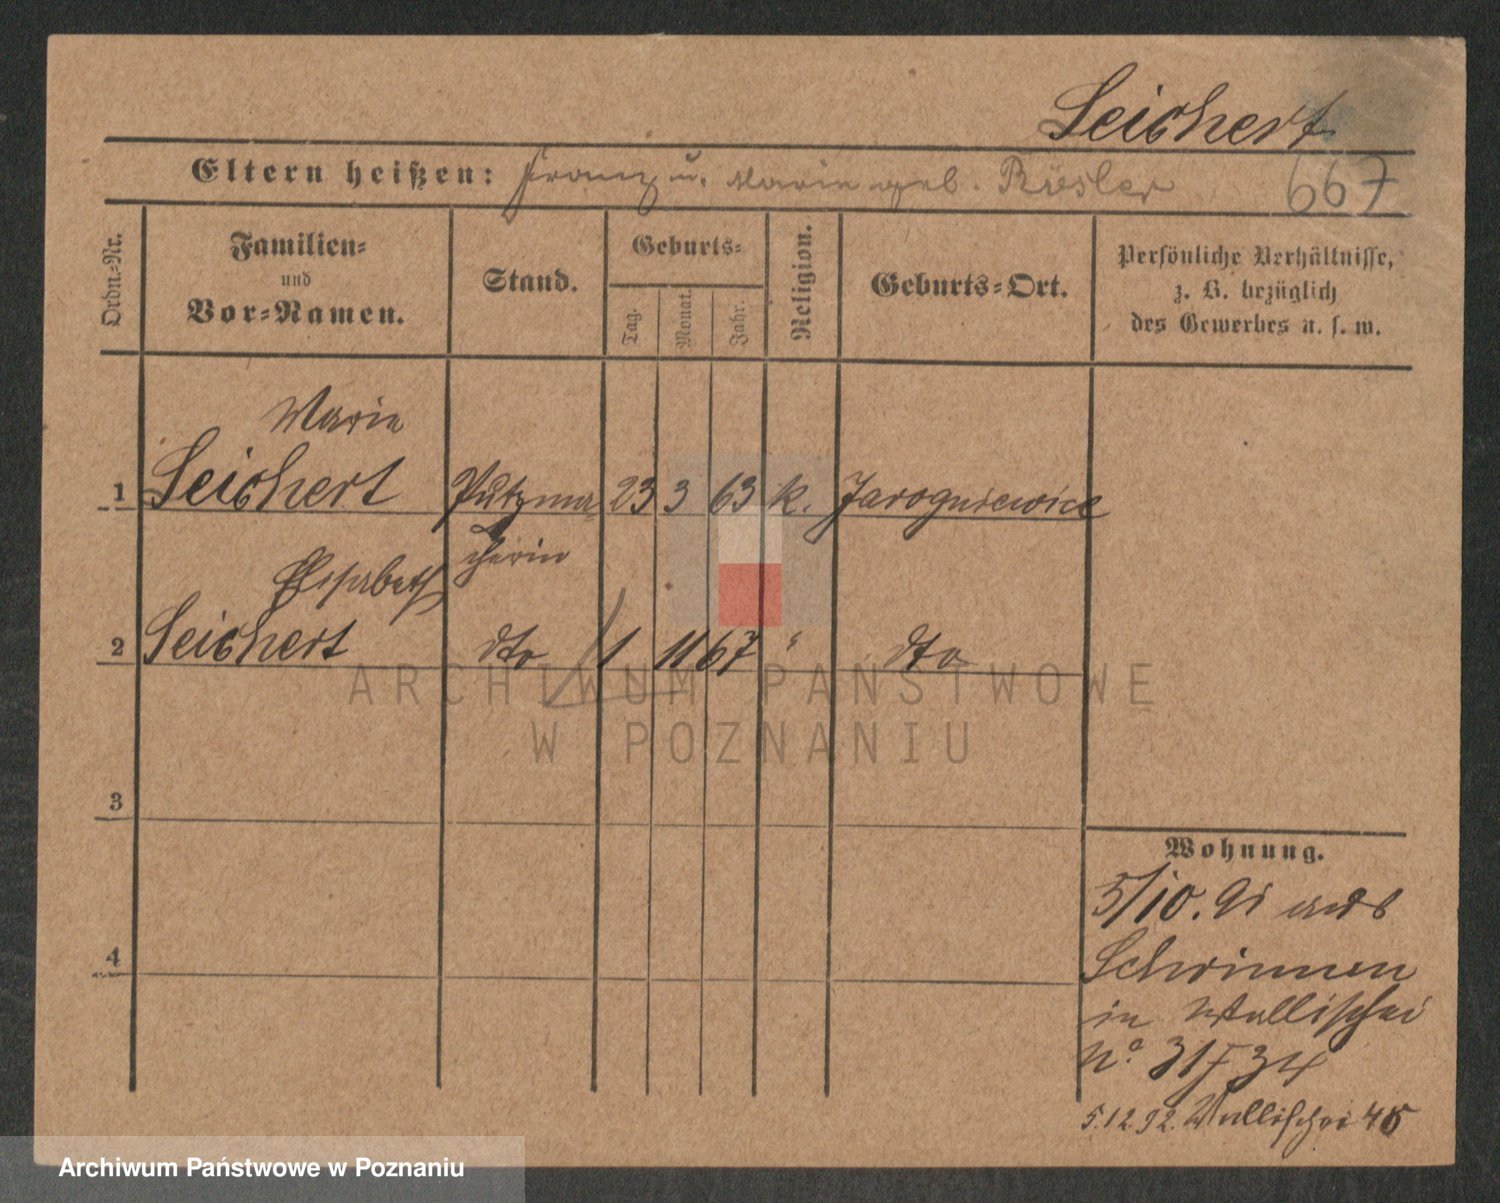 Seichert
Eltern heißen: Franz u. Marie geb. Rösler 667
Ordn.-Nr.
Familien-
und
Vor-Namen.
Stand.
Geburts-
Tag.
Monat.
Jahr.
Religion.
Geburts-Ort.
Persönliche Verhältnisse,
z. B. bezüglich
des Gewerbes u. s. w.
Marie
1 Seichert Putzma- 23 3 63 k. Jarogniewice
cherin
Elisabeth
2 Seichert dto 1 11 67 " dto
3
4
Wohnung.
5/10. 91 aus
Schrimm
in Wallischei
No. 31 34
5.12.92. Wallischei 45
ARCHIWUM PAŃSTWOWE
W POZNANIU
Archiwum Państwowe w Poznaniu